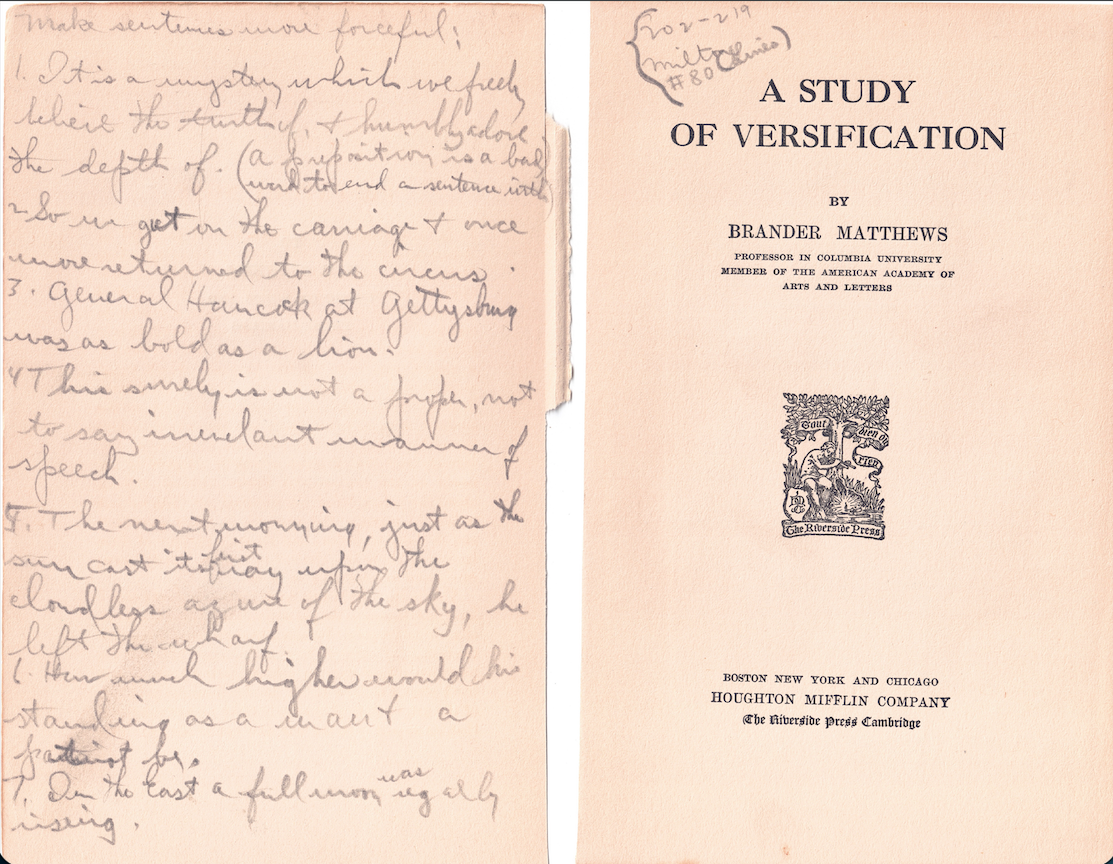 Make sentences more forceful:
1. It is a mystery which we freely
believe the truth of, & humbly adore
the depth of. (a preposition is a bad
word to end a sentence with)
2 So we got in the carriage & once
more returned to the circus.
3. General Hancock at Gettysburg
was as bold as a lion.
4 This surely is not a proper, not
to say irrevelant manner of
speech.
5. The next morning, just as the
sun cast its first ray upon the
cloudless azure of the sky, he
left the wharf.
6. How much higher would his
standing as a man & a
patriot be.
7. In the East a full moon was regally
riseing.
202-219
Milton
#80 lines)
A STUDY
OF VERSIFICATION
BY
BRANDER MATTHEWS
PROFESSOR IN COLUMBIA UNIVERSITY
MEMBER OF THE AMERICAN ACADEMY OF
ARTS AND LETTERS
Tout bien ou
rien
The Riverside Press
BOSTON NEW YORK AND CHICAGO
HOUGHTON MIFFLIN COMPANY
The Riverside Press Cambridge